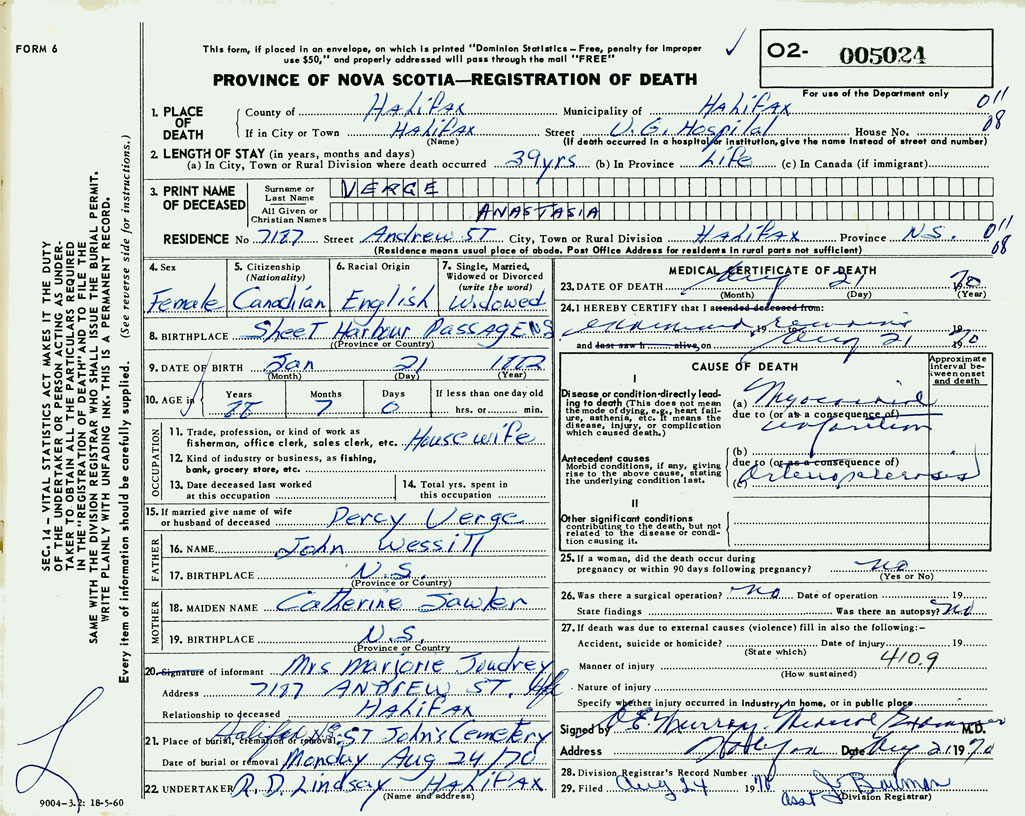 FORM 6
This form, if placed in an envelope, on which is printed "Dominion Statistics—Free, penalty for improper
use $50," and properly addressed will pass through the mail "FREE"
PROVINCE OF NOVA SCOTIA—REGISTRATION OF DEATH
O2- 005024
For use of the Department only
SEC. 14 – VITAL STATISTICS ACT MAKES IT THE DUTY
OF THE UNDERTAKER OR PERSON ACTING AS UNDER-
TAKER TO OBTAIN ALL THE PARTICULARS REQUIRED
IN THE "REGISTRATION OF DEATH" AND TO FILE THE
SAME WITH THE DIVISION REGISTRAR WHO SHALL ISSUE THE BURIAL PERMIT.
WRITE PLAINLY WITH UNFADING INK. THIS IS A PERMANENT RECORD.
Every item of information should be carefully supplied. (See reverse side for instructions.)
1. PLACE OF DEATH
County of Halifax Municipality of Halifax 011
If in City or Town Halifax Street V.G. Hospital House No. 08
(Name) (If death occurred in a hospital or institution, give the name instead of street and number)
2. LENGTH OF STAY (in years, months and days)
(a) In City, Town or Rural Division where death occurred 39yrs (b) In Province Life (c) In Canada (if immigrant)
3. PRINT NAME OF DECEASED
Surname or Last Name VERGE
All Given or Christian Names ANASTASIA
RESIDENCE No 7187 Street Andrew ST City, Town or Rural Division Halifax Province N.S. 011 08
(Residence means usual place of abode. Post Office Address for residents in rural parts not sufficient)
4. Sex Female
5. Citizenship (Nationality) Canadian
6. Racial Origin English
7. Single, Married, Widowed or Divorced (write the word) Widowed
8. BIRTHPLACE Sheet Harbour Passage NS
(Province or Country)
9. DATE OF BIRTH Jan 21 1882
(Month) (Day) (Year)
10. AGE in Years Months Days If less than one day old
88 7 0 hrs. or min.
OCCUPATION
11. Trade, profession, or kind of work as
fisherman, office clerk, sales clerk, etc. Housewife
12. Kind of industry or business, as fishing,
bank, grocery store, etc.
13. Date deceased last worked
at this occupation
14. Total yrs. spent in
this occupation
15. If married give name of wife
or husband of deceased Percy Verge
FATHER
16. NAME John Wessill
17. BIRTHPLACE N.S.
(Province or Country)
MOTHER
18. MAIDEN NAME Catherine Jawler
19. BIRTHPLACE N.S.
(Province or Country)
20. Signature of informant Mrs Marjorie Joudrey
Address 7187 ANDREW ST. Hfx
Relationship to deceased HALIFAX
21. Place of burial, cremation or removal Halifax NS. ST John's Cemetery
Date of burial or removal Monday Aug 24/70
22. UNDERTAKER R.D. Lindsay HALIFAX
(Name and address)
9004-3.2: 18-5-60
MEDICAL CERTIFICATE OF DEATH
23. DATE OF DEATH Aug 21 1970
(Month) (Day) (Year)
24. I HEREBY CERTIFY that I attended deceased from:
examined remains 19
and last saw h alive, on Aug 21 1970
CAUSE OF DEATH
Approximate interval between onset and death
I
Disease or condition directly leading to death (This does not mean the mode of dying, e.g., heart failure, asthenia, etc. It means the disease, injury, or complication which caused death.)
(a) Myocardial
due to (or as a consequence of)
infarction
Antecedent causes
Morbid conditions, if any, giving rise to the above cause, stating the underlying condition last.
(b)
due to (or as a consequence of)
(c) Arteriosclerosis
II
Other significant conditions
contributing to the death, but not related to the disease or condition causing it.
25. If a woman, did the death occur during
pregnancy or within 90 days following pregnancy? no
(Yes or No)
26. Was there a surgical operation? no Date of operation 19
State findings Was there an autopsy? no
27. If death was due to external causes (violence) fill in also the following:–
Accident, suicide or homicide? Date of injury 19
(State which)
Manner of injury 410.9
(How sustained)
Nature of injury
Specify whether injury occurred in industry, in home, or in public place
Signed by O.E. Murray Medical Examiner M.D.
Address Halifax Date Aug 21 1970
28. Division Registrar's Record Number
29. Filed Aug 24 1970 Asst
(Division Registrar)